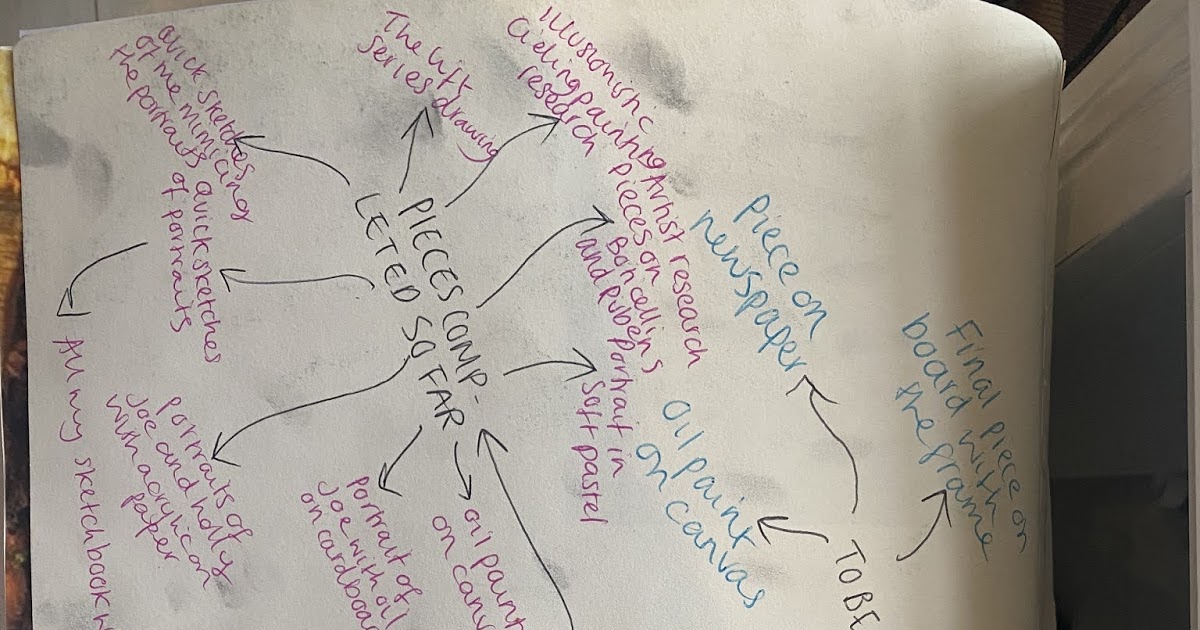 Quick sketches
of me mimicing
the portraits
The Lift
series drawing
Illusionistic
painting
research
Artist research
pieces on
Boticellins
and Rubens
PIECES COMP-
LETED SO
FAR
Quick sketches
of portraits
Portrait in
soft pastel
All my sketchbook
Portraits of
Joe and holly
with acrylic on
paper
Portrait of
Joe with oil
on cardboa
oil paint
on canv
Piece on
newspaper
Oil paint
on canvas
TO BE
Final piece on
board with
the frame